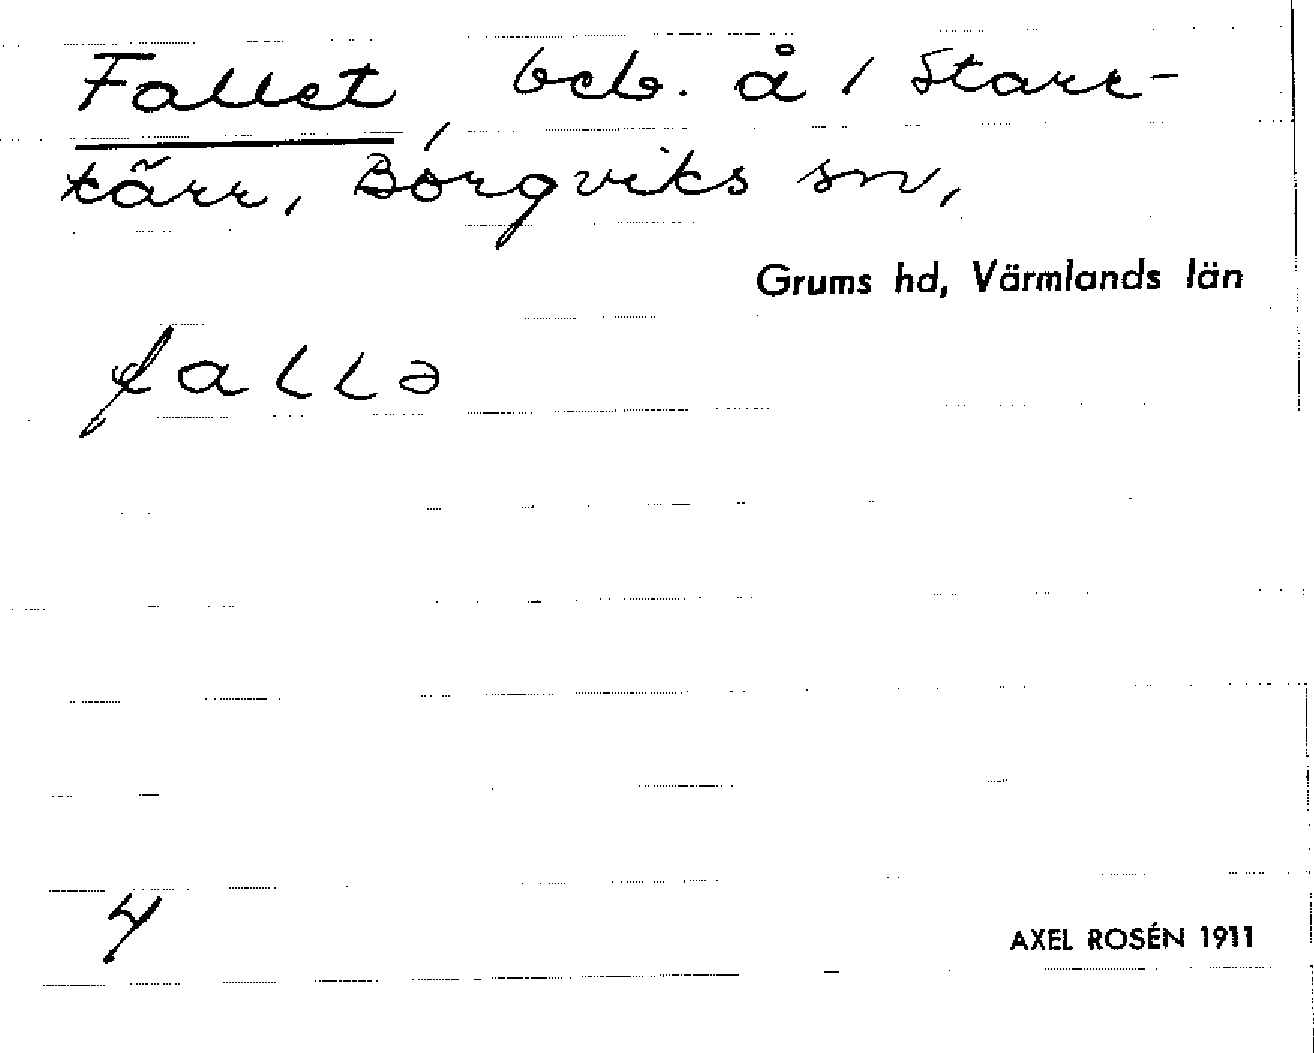 Fallet, beb. å 1 Starr-
kärr, Borgviks sn,
Grums hd, Värmlands län
fallə
4
AXEL ROSÉN 1911